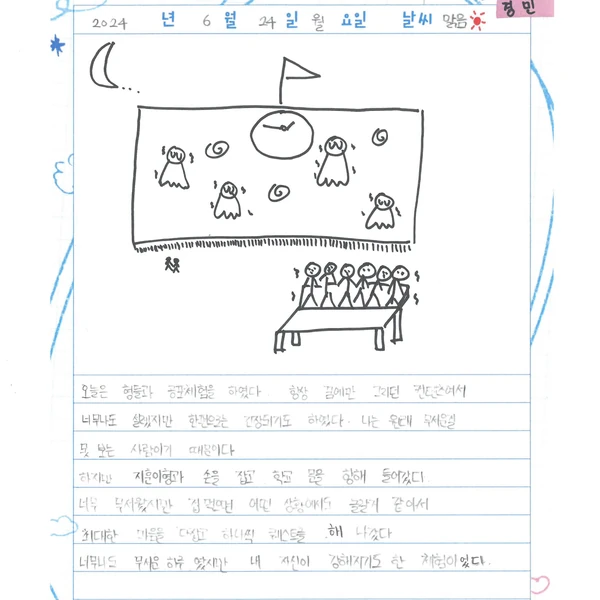 경민
2024 년 6 월 24 일 월 요일 날씨 맑음
오늘은 형들과 공포체험을 하였다. 항상 꿈에만 그리던 컨텐츠여서
너무나도 설렜지만 한편으로는 긴장되기도 하였다. 나는 원래 무서운걸
못 보는 사람이기 때문이다
하지만 지훈이형과 손을 잡고 학교 문을 향해 들어갔다.
너무 무서웠지만 겁먹으면 어떤 상황에서도 못할거 같아서
최대한 마음을 다잡고 하나씩 퀘스트를 해 나갔다
너무나도 무서운 하루 였지만 내 자신이 강해지기도 한 체험이었다.